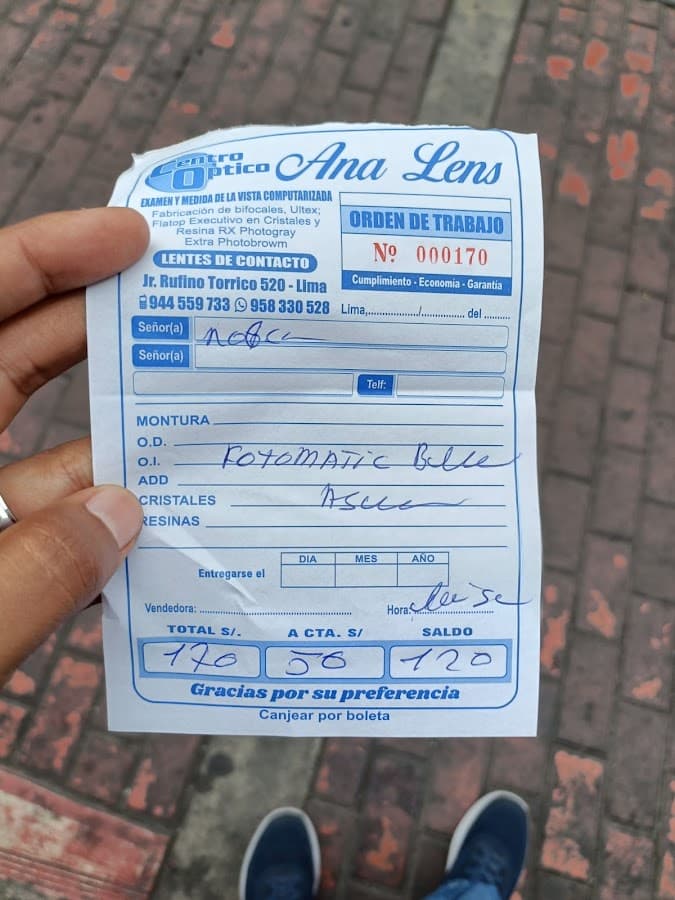 Centro Optico Ana Lens
EXAMEN Y MEDIDA DE LA VISTA COMPUTARIZADA
Fabricación de bifocales, Ultex;
Flatop Executivo en Cristales y
Resina RX Photogray
Extra Photobrowm
LENTES DE CONTACTO
Jr. Rufino Torrico 520 - Lima
944 559 733 958 330 528
ORDEN DE TRABAJO
Nº 000170
Cumplimiento - Economía - Garantía
Lima,..................../............... del .........
Señor(a)
Señor(a)
Telf:
MONTURA
O.D.
O.I. FOTOMATIC
ADD
CRISTALES
RESINAS
DIA MES AÑO
Entregarse el
Vendedora: Hora:
TOTAL S/. A CTA. S/ SALDO
170 50 120
Gracias por su preferencia
Canjear por boleta